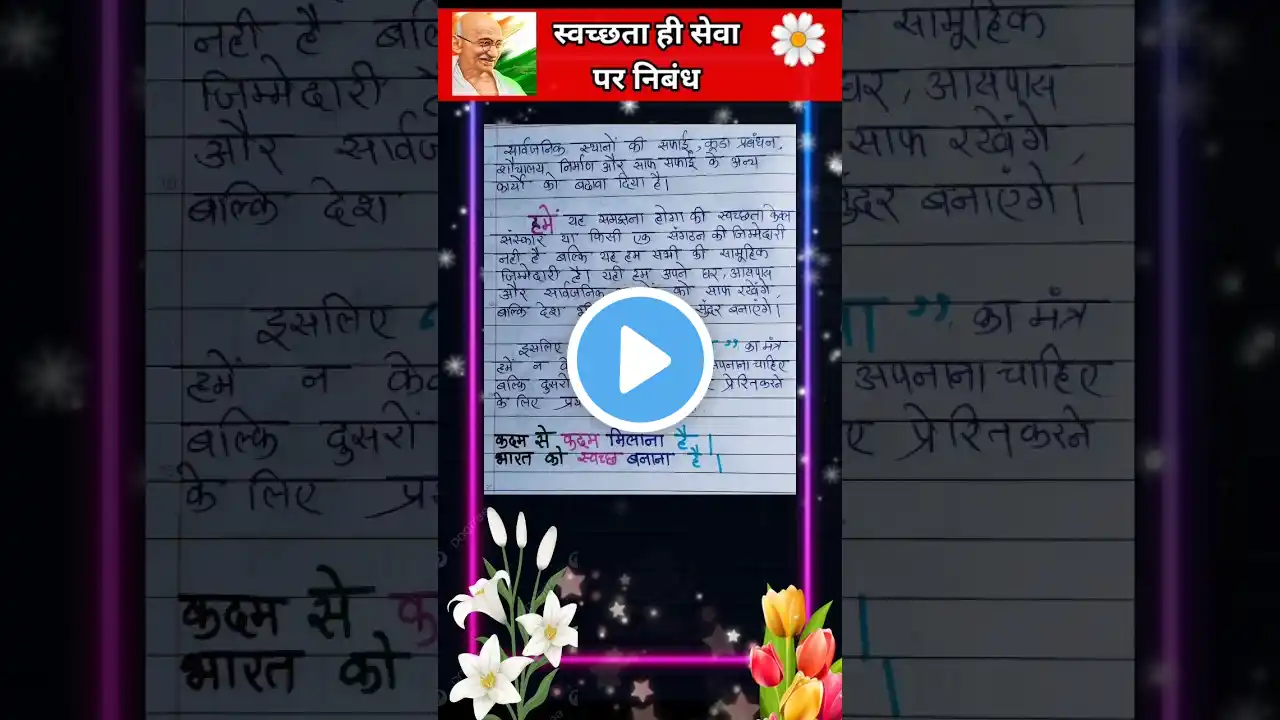 स्वच्छता ही सेवा
पर निबंध
सार्वजनिक स्थानों की सफाई, कूडा प्रबंधन,
शौचालय निर्माण और साफ सफाई के अन्य
कार्यों को बढावा दिया है।
हमें यह समझना होगा की स्वच्छता केवल
संस्कार या किसी एक संगठन की जिम्मेदारी
नही है बल्कि यह हम सभी की सामूहिक
जिम्मेदारी है। यही हम अपने घर, आसपास
और सार्वजनिक को साफ रखेंगे,
बल्कि देश सुंदर बनाएंगे।
इसलिए " का मंत्र
हमें न अपनाना चाहिए
बल्कि दुसरों प्रेरित करने
के लिए
कदम से कदम मिलाना है।
भारत को स्वच्छ बनाना है।